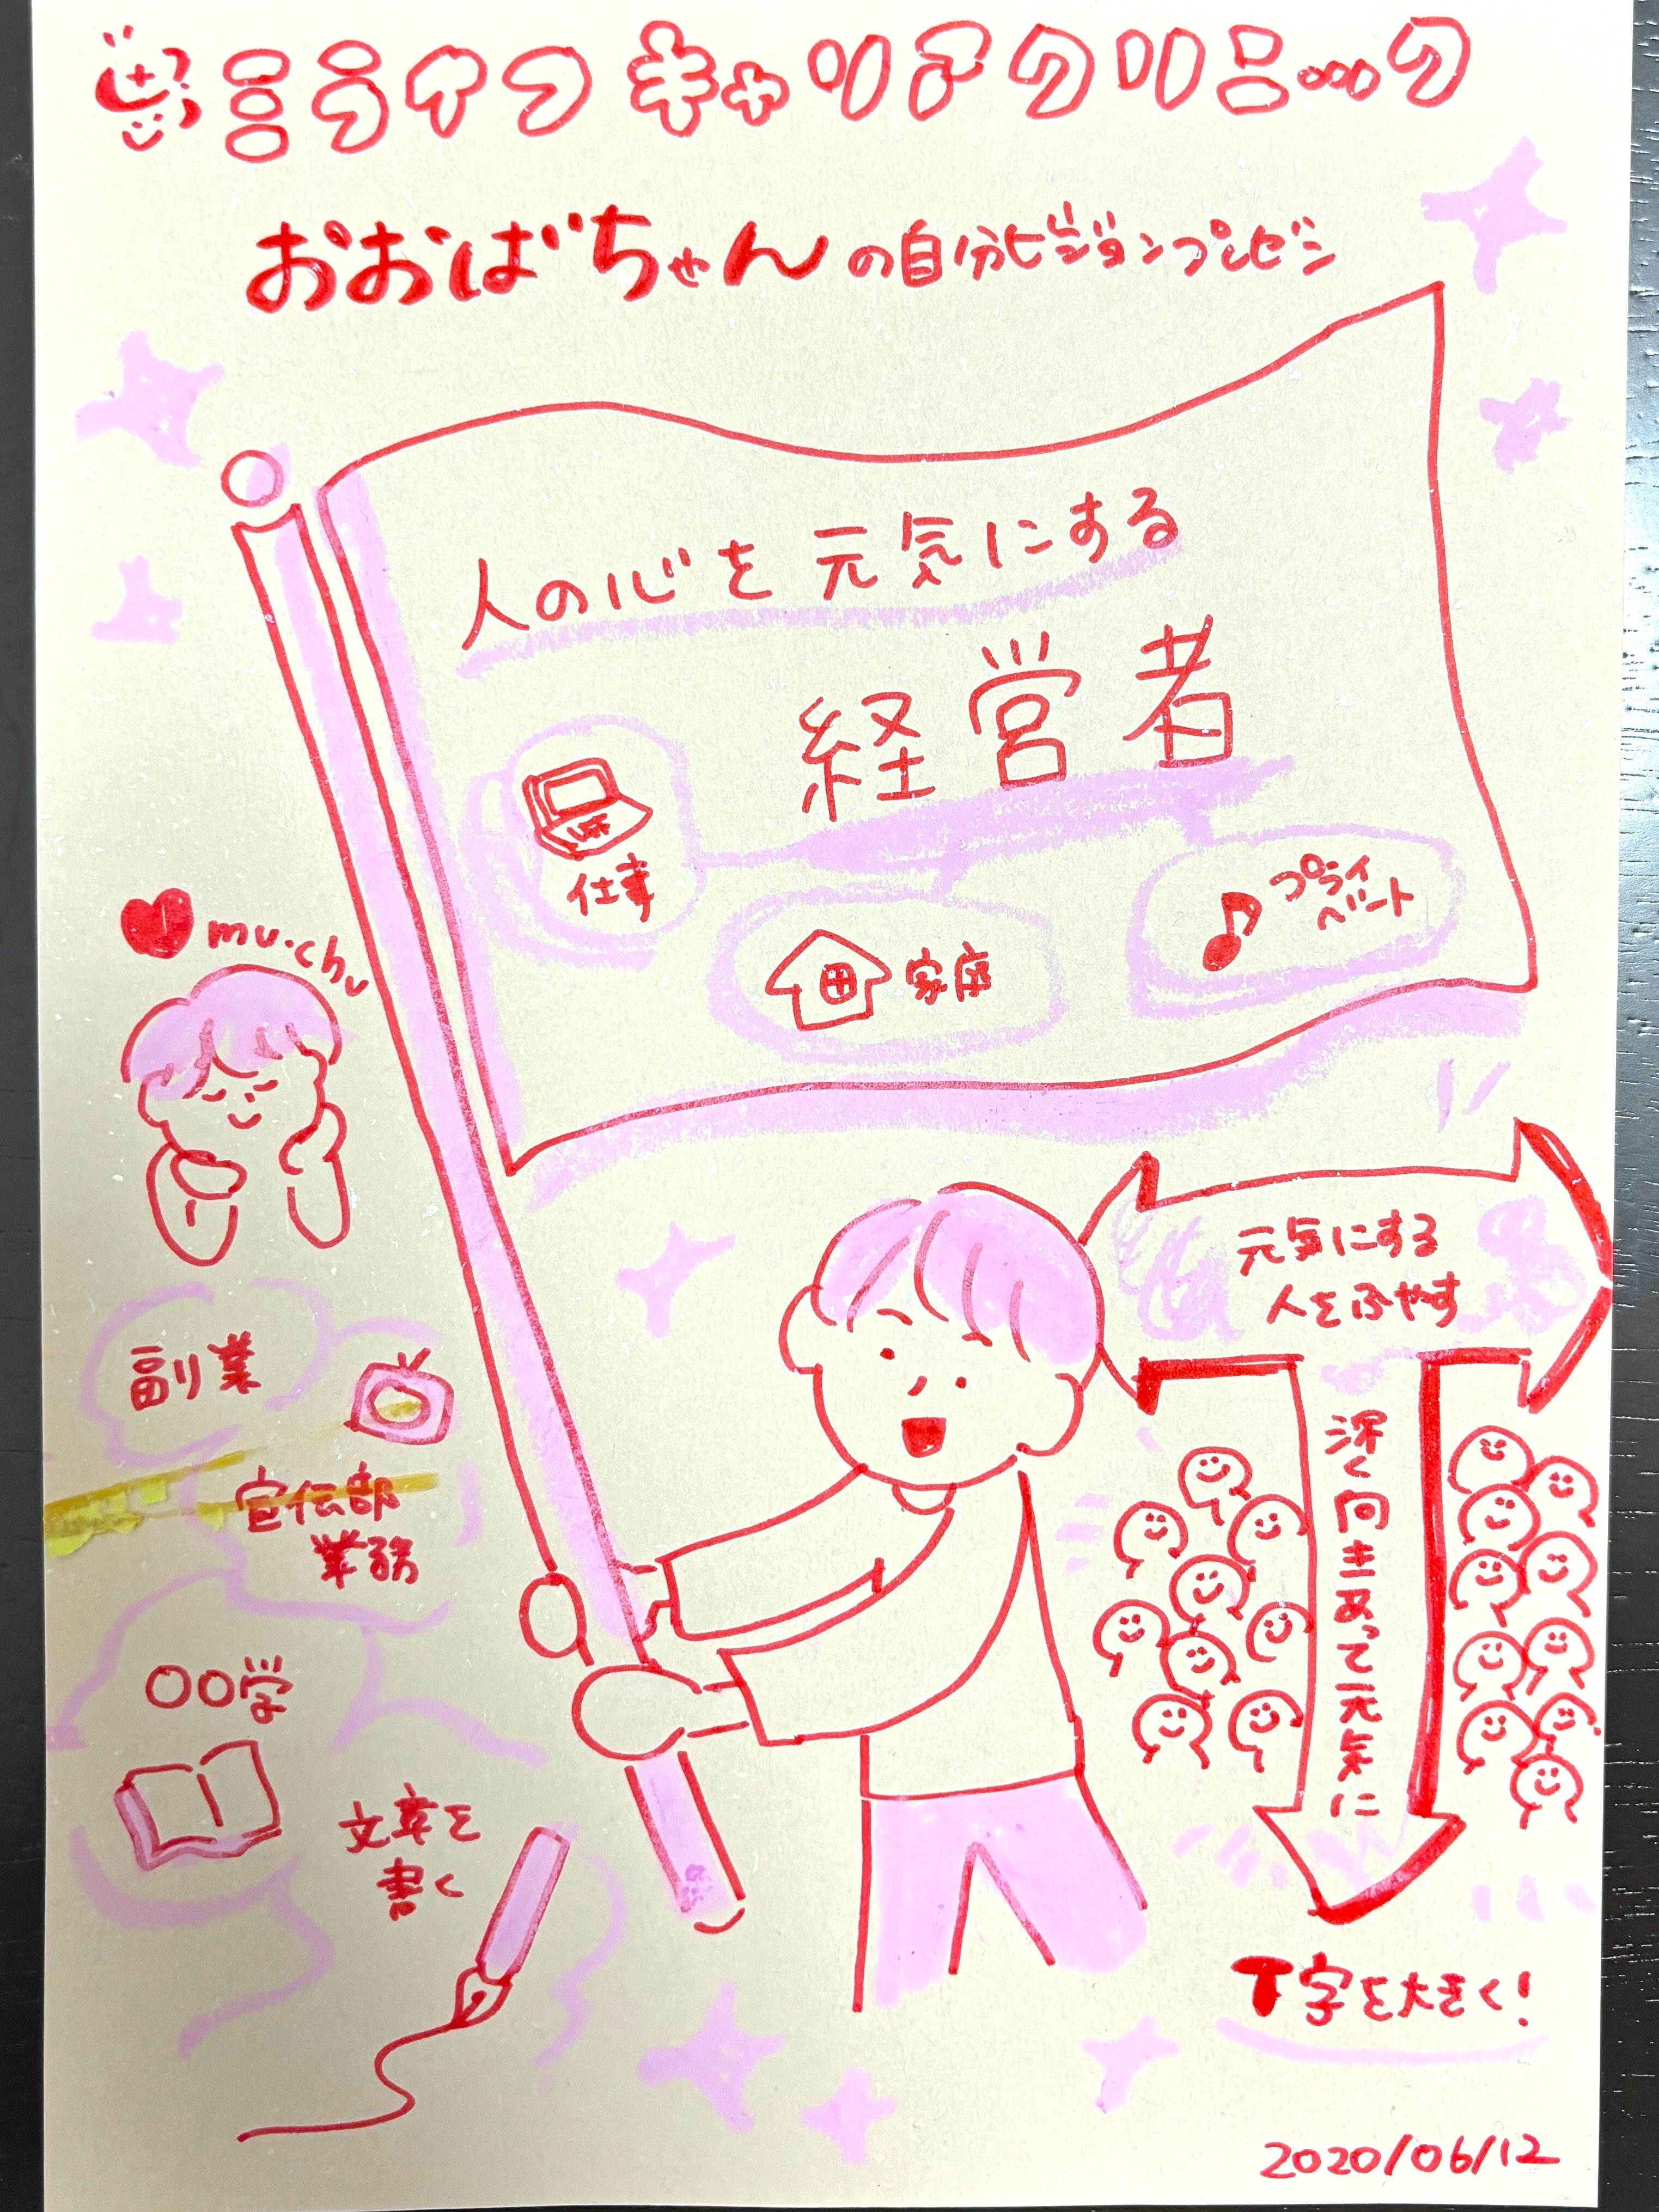 ミライフ キャリアクリニック
おおばちゃんの自分ビジョンプレゼン
人の心を元気にする
経営者
仕事
家庭
プライ
ベート
mu・chu
元気にする
人をふやす
深く向きあって元気に
副業
宣伝部
業務
〇〇学
文章を
書く
T字を大きく!
2020/06/12